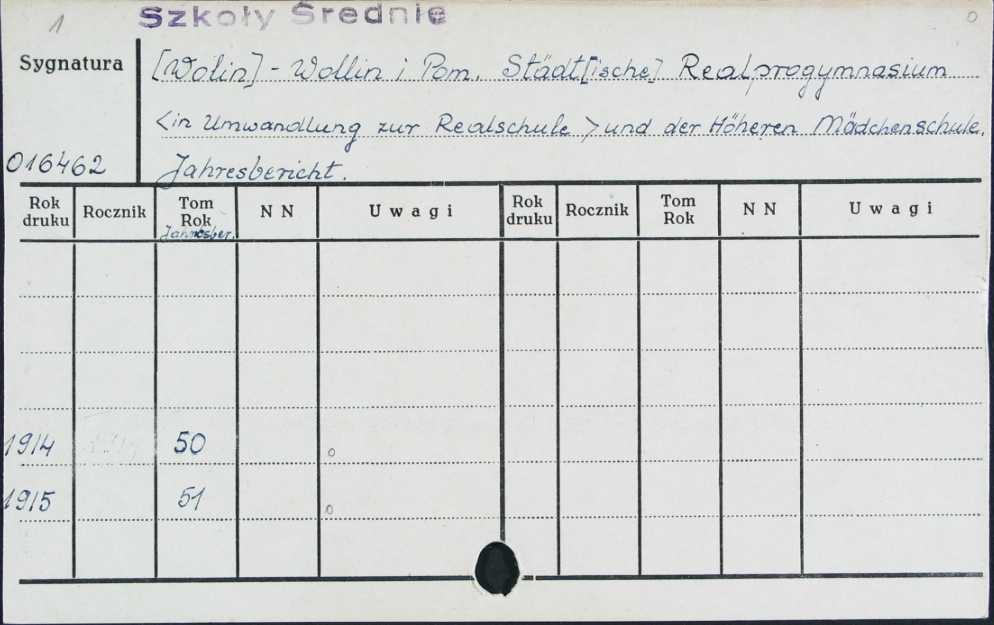 1 Szkoły Średnie o
Sygnatura [Wolin] - Wollin i Pom. Städt[ische] Realprogymnasium
<in Umwandlung zur Realschule > und der Höheren Mädchenschule.
016462 Jahresbericht.
Rok druku Rocznik Tom Rok Jahresber. NN Uwagi Rok druku Rocznik Tom Rok NN Uwagi
1914 50 o
1915 51 o